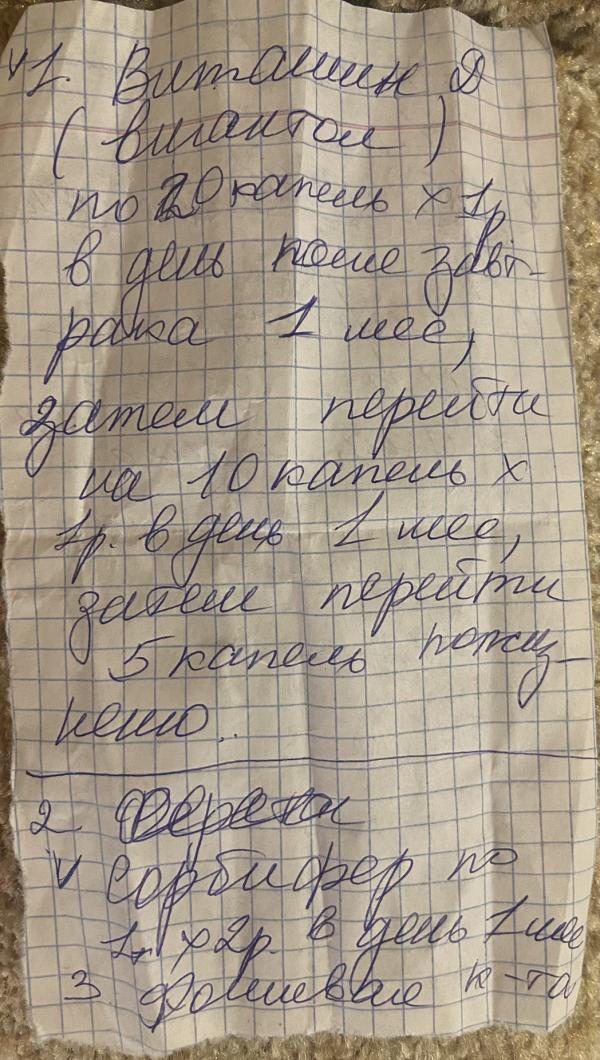 √1. Витамин Д
(вигантол)
по 20 капель x 1р
в день после завт-
рака 1 мес,
затем перейти
на 10 капель x
1р. в день 1 мес,
затем перейти
5 капель пожиз-
нено..
2.
√ Сорбифер по
1т x 2р. в день 1 мес
3. Фолиевая к-та